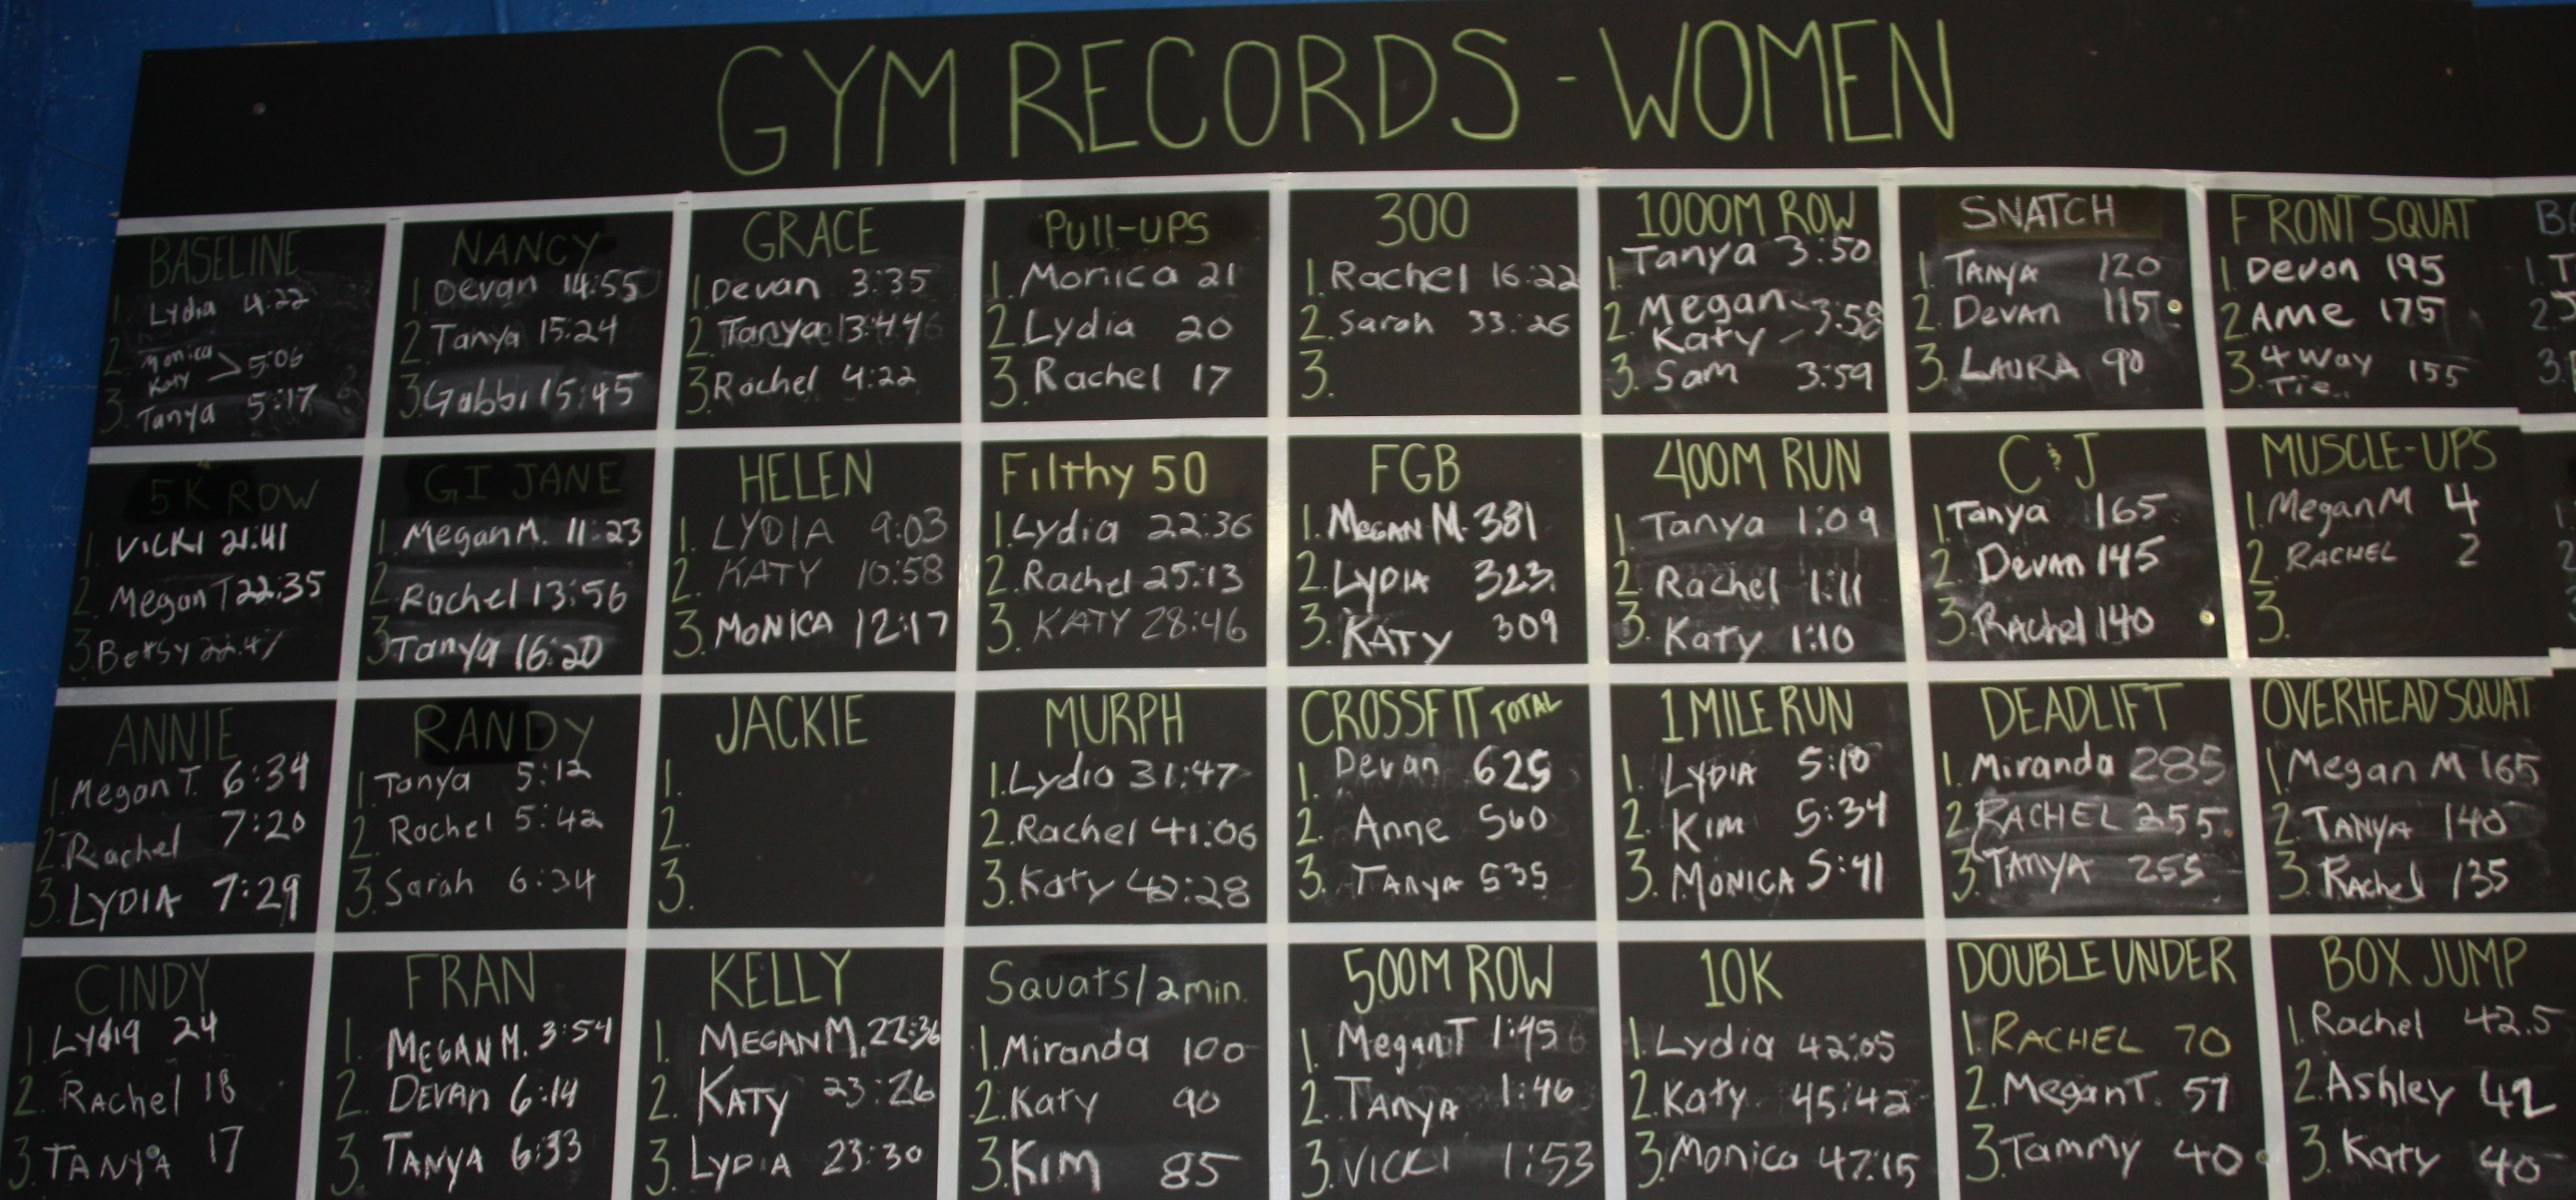 GYM RECORDS - WOMEN
BASELINE
1. Lydia 4:22
2. Monica
Katy > 5:06
3. Tanya 5:17
NANCY
1. Devan 14:55
2. Tanya 15:24
3. Gabbi 15:45
GRACE
1. Devan 3:35
2. Tanya 3:44
3. Rachel 4:22
Pull-UPS
1. Monica 21
2. Lydia 20
3. Rachel 17
300
1. Rachel 16:22
2. Sarah 33:26
3.
1000M ROW
1. Tanya 3:50
2. Megan - 3:58
Katy
3. Sam 3:59
SNATCH
1. TANYA 120
2. DEVAN 115
3. LAURA 90
FRONT SQUAT
1. Devan 195
2. Ame 175
3. 4 Way 155
Tie..
5K ROW
1. VICKI 21:41
2. Megan T 22:35
3. Betsy 22:47
GI JANE
1. Megan M. 11:23
2. Rachel 13:56
3. Tanya 16:20
HELEN
1. LYDIA 9:03
2. KATY 10:58
3. MONICA 12:17
Filthy 50
1. Lydia 22:36
2. Rachel 25:13
3. KATY 28:46
FGB
1. MEGAN M. 381
2. LYDIA 323
3. KATY 309
400M RUN
1. Tanya 1:09
2. Rachel 1:11
3. Katy 1:10
C & J
1. Tanya 165
2. Devan 145
3. RAChel 140
MUSCLE-UPS
1. Megan M 4
2. RACHEL 2
3.
ANNIE
1. Megan T. 6:34
2. Rachel 7:20
3. LYDIA 7:29
RANDY
1. Tanya 5:12
2. Rachel 5:42
3. Sarah 6:34
JACKIE
1.
2.
3.
MURPH
1. Lydia 31:47
2. Rachel 41:06
3. Katy 42:28
CROSSFIT TOTAL
1. Devan 625
2. Anne 560
3. TANYA 535
1 MILE RUN
1. LYDIA 5:10
2. KIM 5:34
3. MONICA 5:41
DEADLIFT
1. Miranda 285
2. RACHEL 255
3. TANYA 255
OVERHEAD SQUAT
1. Megan M 165
2. TANYA 140
3. RAchel 135
CINDY
1. Lydia 24
2. Rachel 18
3. TANYA 17
FRAN
1. MEGAN M. 3:54
2. DEVAN 6:14
3. TANYA 6:33
KELLY
1. MEGAN M. 22:36
2. KATY 23:26
3. LYDIA 23:30
Squats/2min.
1. Miranda 100
2. Katy 90
3. Kim 85
500M ROW
1. Megan T 1:45
2. TANYA 1:46
3. VICKI 1:53
10K
1. Lydia 42:05
2. Katy 45:42
3. Monica 47:15
DOUBLE UNDER
1. RACHEL 70
2. Megan T. 57
3. Tammy 40
BOX JUMP
1. Rachel 42.5
2. Ashley 42
3. Katy 40